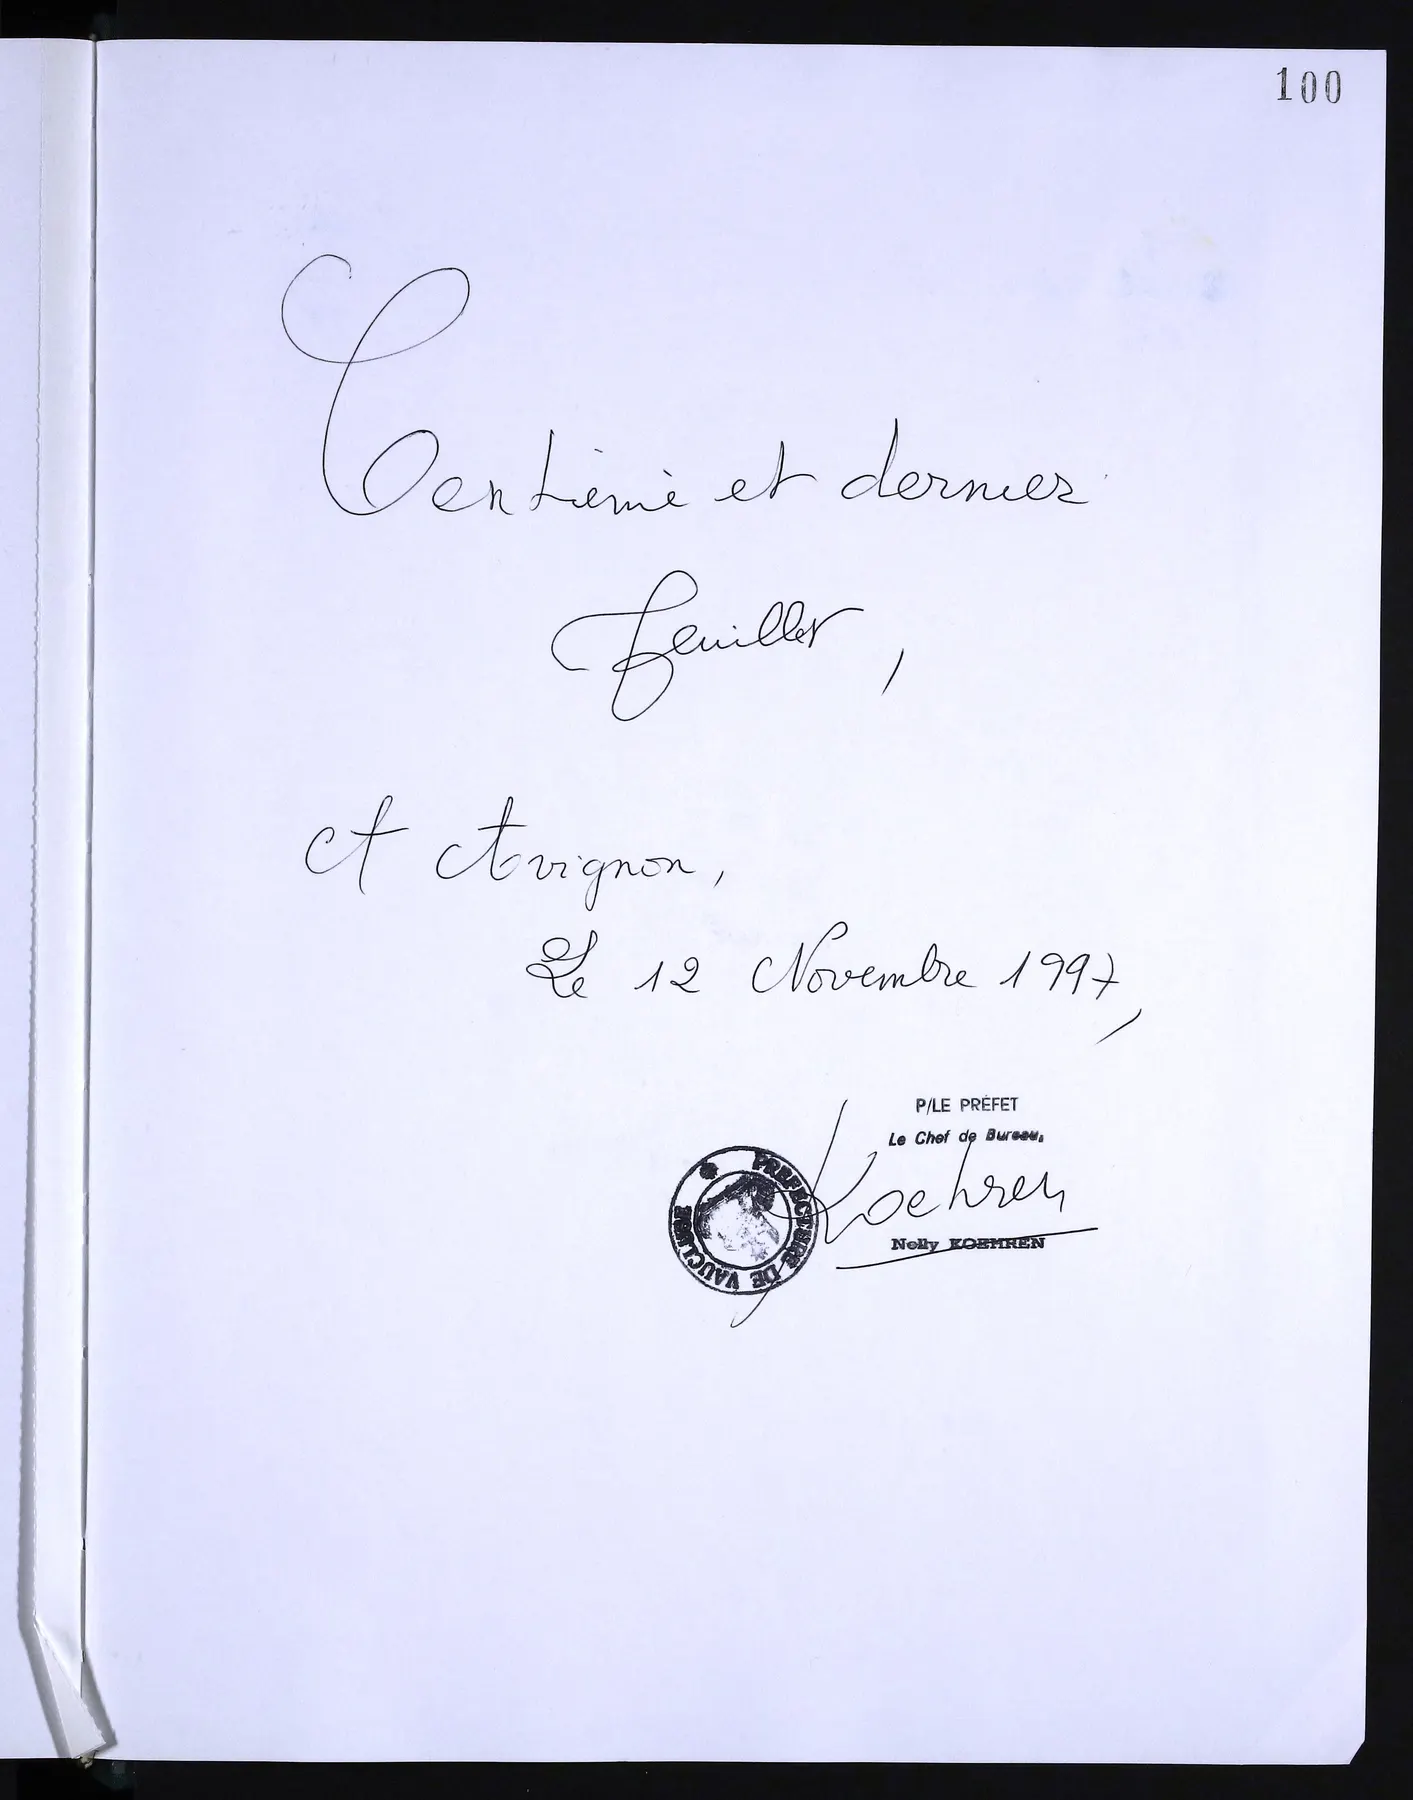 100
Centième et dernier
feuillet,
A Avignon,
Le 12 Novembre 1997,
P/LE PRÉFET
Le Chef de Bureau,
Koehren
Nelly KOEHREN
PREFECTURE DE VAUCLUSE